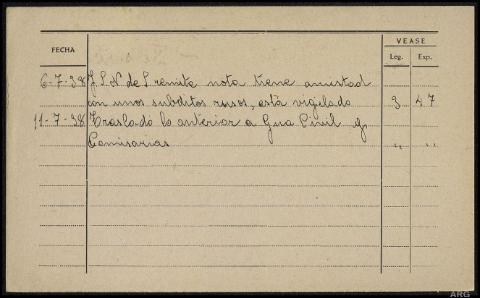 FECHA
VEASE
Leg. Exp.
6-7-38 J.S.N. de S. remite nota tiene amistad
con unos subditos rusos, está vigilado 3 47
11-7-38 Traslado lo anterior a Gua Civil y
Comisarias " "
ARG